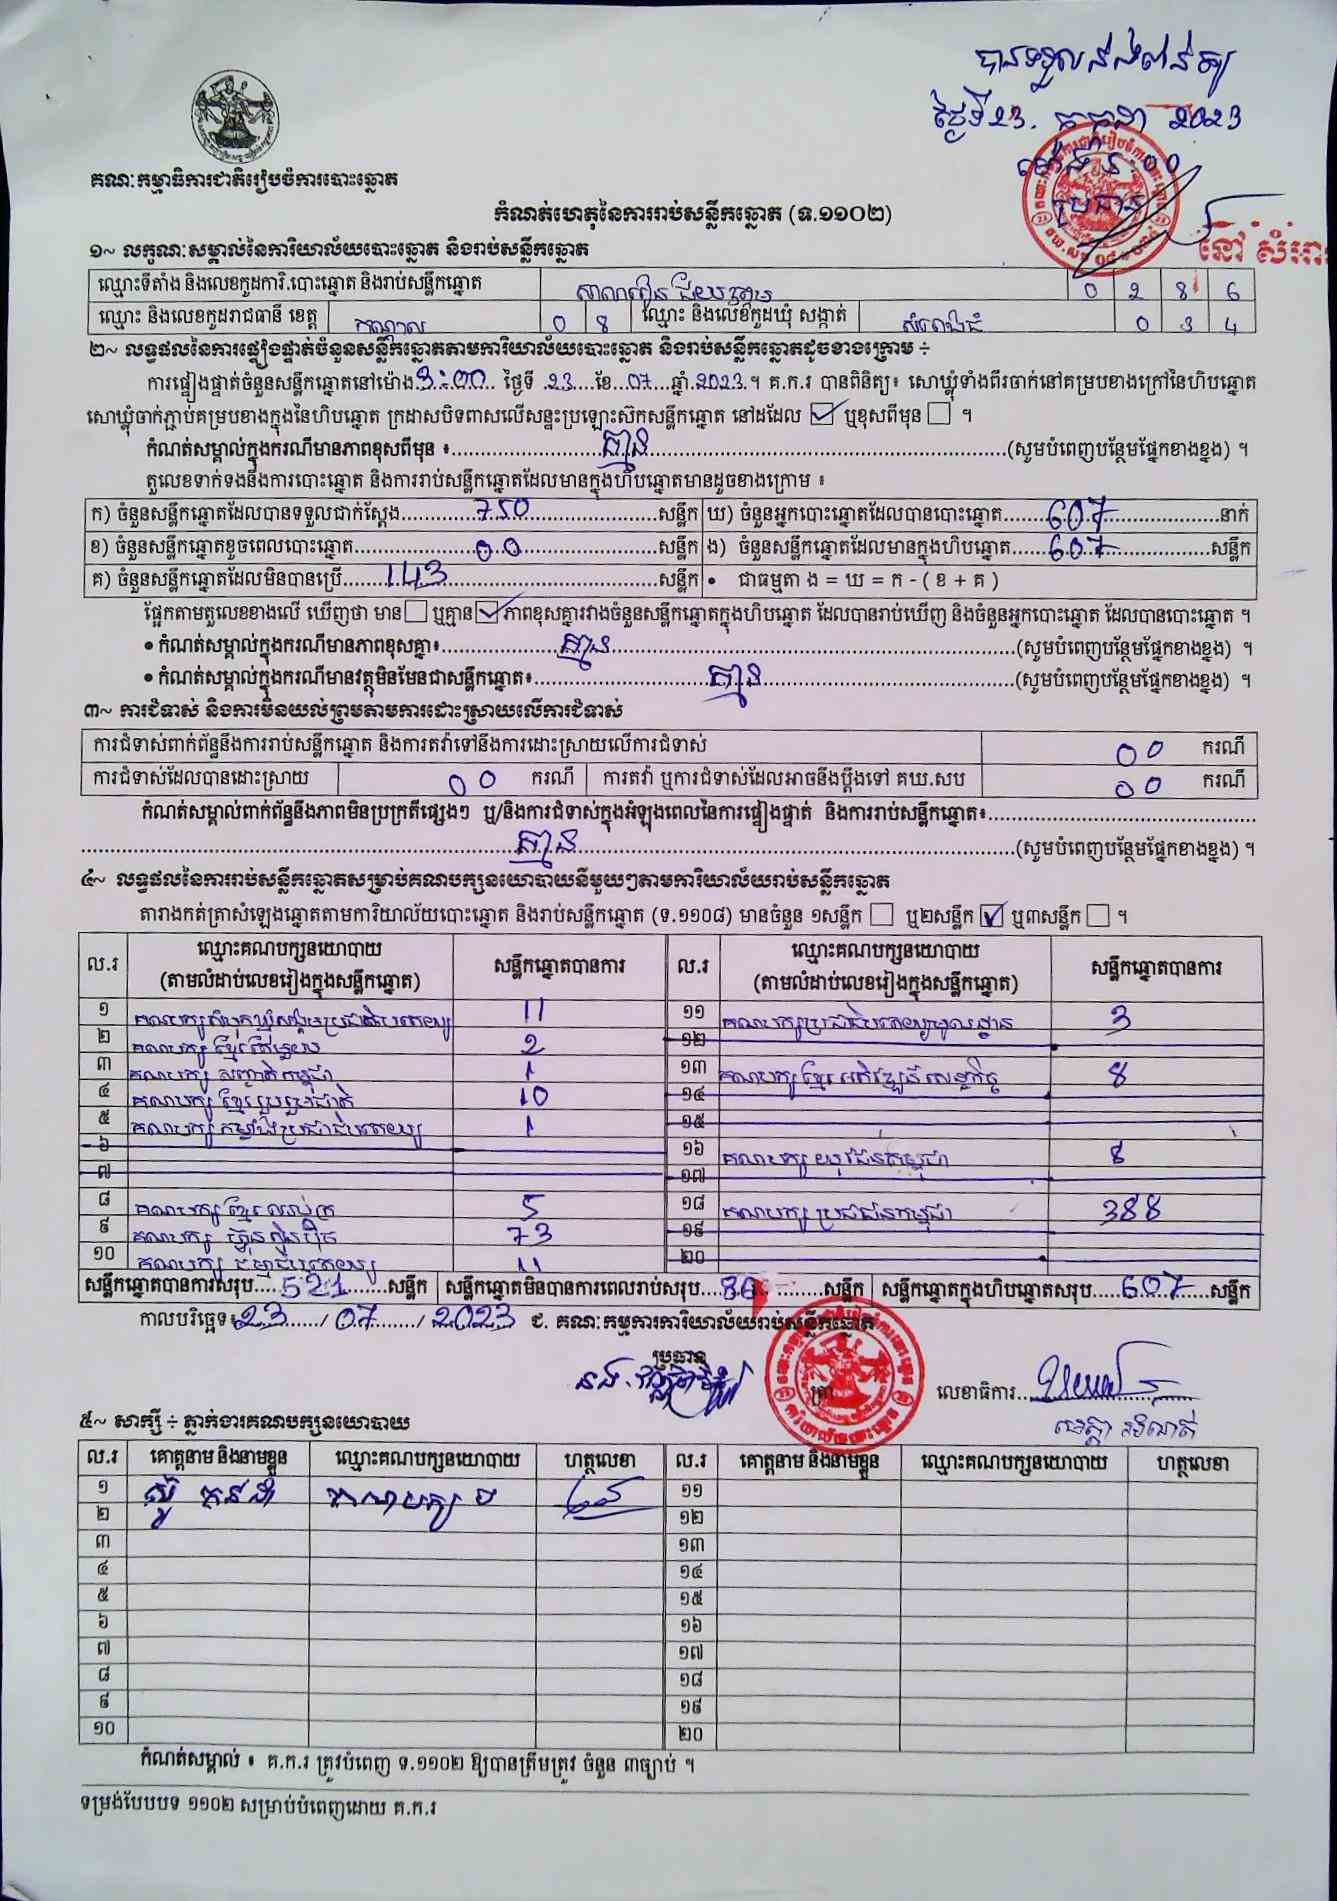 ថ្ងៃទី 23. កក្កដា 2023
ប្រធាន
គណៈកម្មាធិការជាតិរៀបចំការបោះឆ្នោត
កំណត់ហេតុនៃការរាប់សន្លឹកឆ្នោត (ទ.១១០២)
នៅ សំរោ
១~ លក្ខណៈសម្គាល់នៃការិយាល័យបោះឆ្នោត និងរាប់សន្លឹកឆ្នោត
ឈ្មោះទីតាំង និងលេខកូដការិ.បោះឆ្នោត និងរាប់សន្លឹកឆ្នោត សាលារៀន ជ័យ 0 2 8 6
ឈ្មោះ និងលេខកូដរាជធានី ខេត្ត កណ្តាល 0 8 ឈ្មោះ និងលេខកូដឃុំ សង្កាត់ សំរោងធំ 0 3 4
២~ លទ្ធផលនៃការផ្ទៀងផ្ទាត់ចំនួនសន្លឹកឆ្នោតតាមការិយាល័យបោះឆ្នោត និងរាប់សន្លឹកឆ្នោតដូចខាងក្រោម ÷
ការផ្ទៀងផ្ទាត់ចំនួនសន្លឹកឆ្នោតនៅម៉ោង 3:00 ថ្ងៃទី 23 ខែ 07 ឆ្នាំ 2023 ។ គ.ក.រ បានពិនិត្យ៖ សោឃ្លុំទាំងពីរចាក់នៅគម្របខាងក្រៅនៃហិបឆ្នោត
សោឃ្លុំចាក់ភ្ជាប់គម្របខាងក្នុងនៃហិបឆ្នោត ក្រដាសបិទពាសលើសន្ទះប្រឡោះស៊កសន្លឹកឆ្នោត នៅដដែល ☑ ឬខុសពីមុន ☐ ។
កំណត់សម្គាល់ក្នុងករណីមានភាពខុសពីមុន ៖ គ្មាន (សូមបំពេញបន្ថែមផ្នែកខាងខ្នង) ។
តួលេខទាក់ទងនឹងការបោះឆ្នោត និងការរាប់សន្លឹកឆ្នោតដែលមានក្នុងហិបឆ្នោតមានដូចខាងក្រោម ៖
ក) ចំនួនសន្លឹកឆ្នោតដែលបានទទួលជាក់ស្តែង 750 សន្លឹក ឃ) ចំនួនអ្នកបោះឆ្នោតដែលបានបោះឆ្នោត 607 នាក់
ខ) ចំនួនសន្លឹកឆ្នោតខូចពេលបោះឆ្នោត 00 សន្លឹក ង) ចំនួនសន្លឹកឆ្នោតដែលមានក្នុងហិបឆ្នោត 607 សន្លឹក
គ) ចំនួនសន្លឹកឆ្នោតដែលមិនបានប្រើ 143 សន្លឹក • ជាធម្មតា ង = ឃ = ក - ( ខ + គ )
ផ្អែកតាមតួលេខខាងលើ ឃើញថា មាន ☐ ឬគ្មាន ☑ ភាពខុសគ្នារវាងចំនួនសន្លឹកឆ្នោតក្នុងហិបឆ្នោត ដែលបានរាប់ឃើញ និងចំនួនអ្នកបោះឆ្នោត ដែលបានបោះឆ្នោត ។
• កំណត់សម្គាល់ក្នុងករណីមានភាពខុសគ្នា៖ គ្មាន (សូមបំពេញបន្ថែមផ្នែកខាងខ្នង) ។
• កំណត់សម្គាល់ក្នុងករណីមានវត្ថុមិនមែនជាសន្លឹកឆ្នោត៖ គ្មាន (សូមបំពេញបន្ថែមផ្នែកខាងខ្នង) ។
៣~ ការជំទាស់ និងការមិនយល់ព្រមតាមការដោះស្រាយលើការជំទាស់
ការជំទាស់ពាក់ព័ន្ធនឹងការរាប់សន្លឹកឆ្នោត និងការតវ៉ាទៅនឹងការដោះស្រាយលើការជំទាស់ 00 ករណី
ការជំទាស់ដែលបានដោះស្រាយ 00 ករណី ការតវ៉ា ឬការជំទាស់ដែលអាចនឹងប្តឹងទៅ គឃ.សប 00 ករណី
កំណត់សម្គាល់ពាក់ព័ន្ធនឹងភាពមិនប្រក្រតីផ្សេងៗ ឬ/និងការជំទាស់ក្នុងអំឡុងពេលនៃការផ្ទៀងផ្ទាត់ និងការរាប់សន្លឹកឆ្នោត៖
គ្មាន (សូមបំពេញបន្ថែមផ្នែកខាងខ្នង) ។
៤~ លទ្ធផលនៃការរាប់សន្លឹកឆ្នោតសម្រាប់គណបក្សនយោបាយនីមួយៗតាមការិយាល័យរាប់សន្លឹកឆ្នោត
តារាងកត់ត្រាសំឡេងឆ្នោតតាមការិយាល័យបោះឆ្នោត និងរាប់សន្លឹកឆ្នោត (ទ.១១០៨) មានចំនួន ១សន្លឹក ☐ ឬ២សន្លឹក ☑ ឬ៣សន្លឹក ☐ ។
ល.រ ឈ្មោះគណបក្សនយោបាយ (តាមលំដាប់លេខរៀងក្នុងសន្លឹកឆ្នោត) សន្លឹកឆ្នោតបានការ ល.រ ឈ្មោះគណបក្សនយោបាយ (តាមលំដាប់លេខរៀងក្នុងសន្លឹកឆ្នោត) សន្លឹកឆ្នោតបានការ
១ គណបក្សសំបុកឃ្មុំសង្គមប្រជាធិបតេយ្យ 11 ១១ គណបក្សប្រជាធិបតេយ្យមូលដ្ឋាន 3
២ គណបក្ស ខ្មែរតែមួយ 2 ១២
៣ គណបក្ស សញ្ជាតិកម្ពុជា 1 ១៣ គណបក្ស ខ្មែរអភិវឌ្ឍន៍សេដ្ឋកិច្ច 8
៤ គណបក្ស ខ្មែររួបរួមជាតិ 10 ១៤
៥ គណបក្ស កម្លាំងប្រជាធិបតេយ្យ 1 ១៥
៦ ១៦ គណបក្ស យុវជនកម្ពុជា 8
៧ ១៧
៨ គណបក្ស ខ្មែរឈប់ក្រ 5 ១៨ គណបក្ស ប្រជាជនកម្ពុជា 388
៩ គណបក្ស ហ៊្វុនស៊ិនប៉ិច 73 ១៩
១០ គណបក្ស ធម្មាធិបតេយ្យ 11 ២០
សន្លឹកឆ្នោតបានការសរុប 521 សន្លឹក សន្លឹកឆ្នោតមិនបានការពេលរាប់សរុប 86 សន្លឹក សន្លឹកឆ្នោតក្នុងហិបឆ្នោតសរុប 607 សន្លឹក
កាលបរិច្ឆេទ៖ 23 / 07 / 2023 ជ. គណៈកម្មការការិយាល័យរាប់សន្លឹកឆ្នោត
ប្រធាន ត្រា លេខាធិការ
៥~ សាក្សី ÷ ភ្នាក់ងារគណបក្សនយោបាយ
ល.រ គោត្តនាម និងនាមខ្លួន ឈ្មោះគណបក្សនយោបាយ ហត្ថលេខា ល.រ គោត្តនាម និងនាមខ្លួន ឈ្មោះគណបក្សនយោបាយ ហត្ថលេខា
១ គណបក្ស ១១
២ ១២
៣ ១៣
៤ ១៤
៥ ១៥
៦ ១៦
៧ ១៧
៨ ១៨
៩ ១៩
១០ ២០
កំណត់សម្គាល់ ៖ គ.ក.រ ត្រូវបំពេញ ទ.១១០២ ឱ្យបានត្រឹមត្រូវ ចំនួន ៣ច្បាប់ ។
ទម្រង់បែបបទ ១១០២ សម្រាប់បំពេញដោយ គ.ក.រ